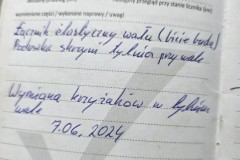 wymienione części / wykonane naprawy / uwagi
Łącznik elastyczny wału (bicie budą)
Podowska skrzyni tylnia przy wale
Wymiana krzyżaków w tylnim
wale
7.06.2024